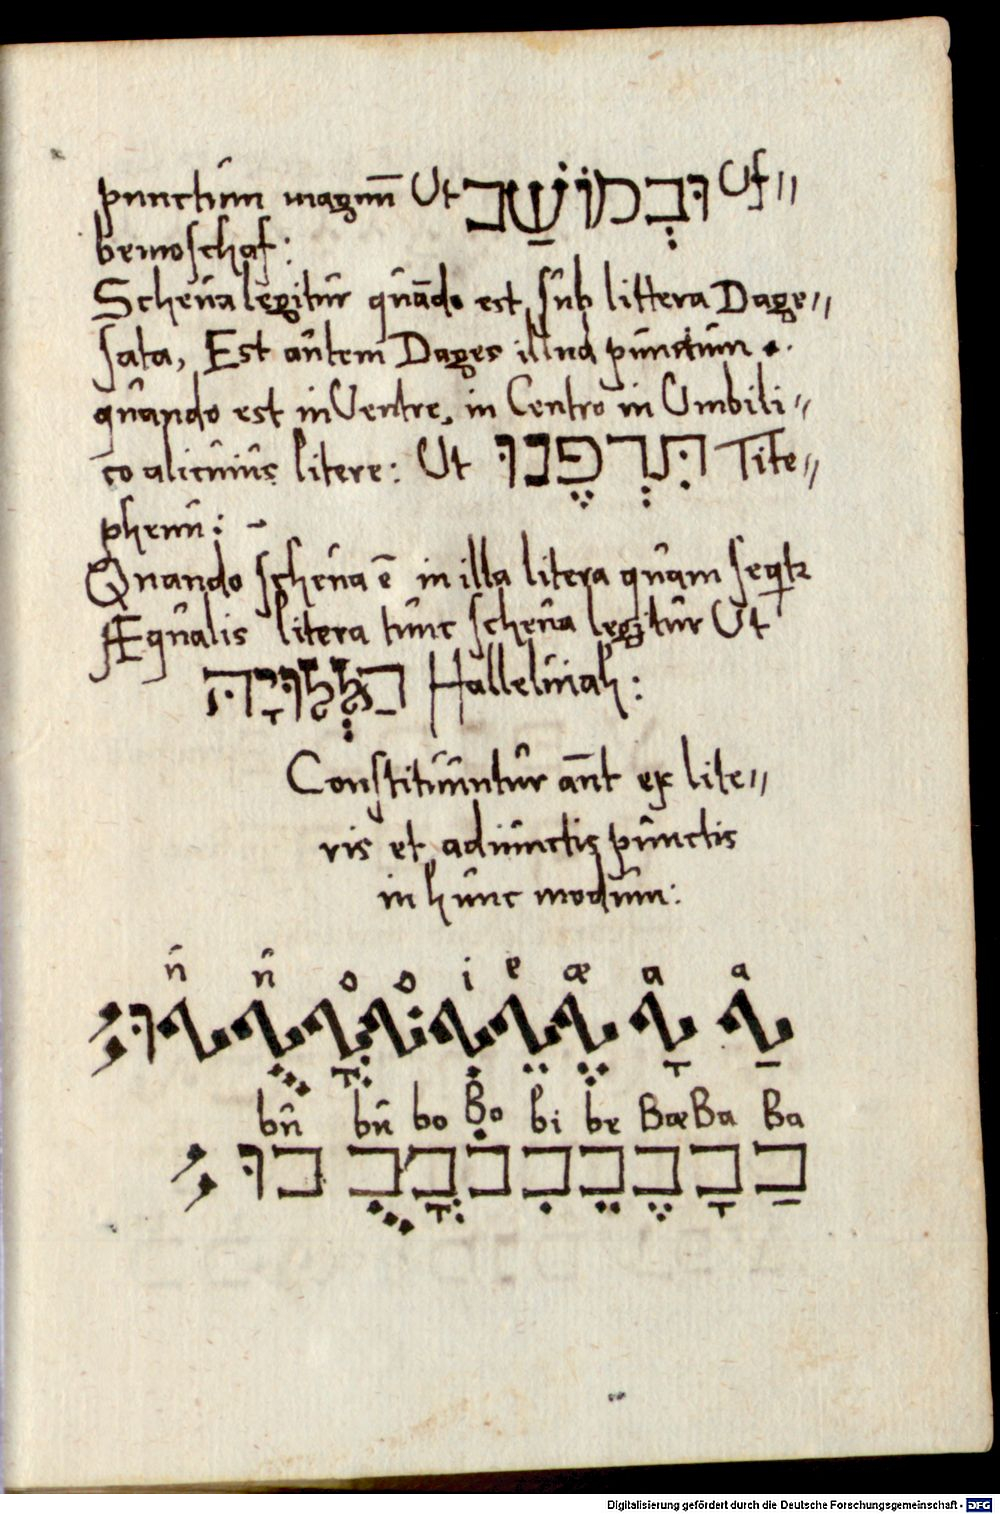 punctum magnū Ut וּבְמוֹשַׁב Uf〃
bemoschaf:
Scheua legitur quādo est sub littera Dage〃
sata, Est autem Dages illud punctum •.
quando est in Ventre, in Centro in Umbili〃
co alicuius litere: Ut תִּרְפֶּנוּ Tite〃
phenu: -
Quando scheua ē in illa litera quam seqtr
Æqualis litera tunc scheua legitur Ut
הַלְלוּיָהּ Halleluiah:
Constituuntur aūt ex lite〃
ris et adiunctis punctis
in hunc modum:
u u o o i e æ a a
אַ אָ אֶ אֵ אִ אֹ אֳ אֻ אוּ
bu bu bo Bo bi be Bæ Ba Ba
בַ בָ בֶ בֵ בִ בֹ בֳ בֻ בוּ
Digitalisierung gefördert durch die Deutsche Forschungsgemeinschaft - DFG